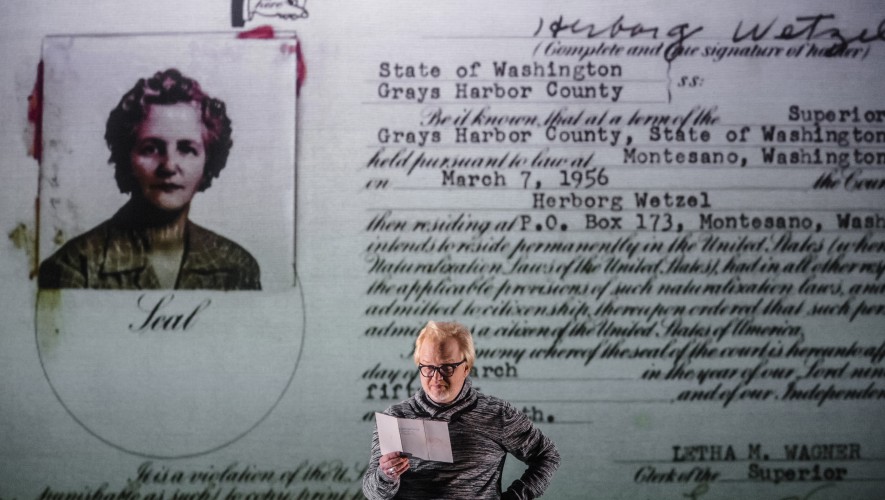 here
Herborg Wetzel
(Complete and true signature of holder)
State of Washington
Grays Harbor County
ss:
Be it known, that at a term of the Superior
Grays Harbor County, State of Washington
held pursuant to law at Montesano, Washington
on March 7, 1956 the Cour
Herborg Wetzel
then residing at P.O. Box 173, Montesano, Wash
intends to reside permanently in the United States (when
Naturalization Laws of the United States), had in all other res
the applicable provisions of such naturalization laws, and
admitted to citizenship, thereupon ordered that such per
admi as a citizen of the United States of America.
mony whereof the seal of the court is hereunto aff
day of arch in the year of our Lord nin
fift and of our Independen
th.
Seal
LETHA M. WAGNER
Clerk of the Superior
It is a violation of the U.S.
punishable as such) to copy, print